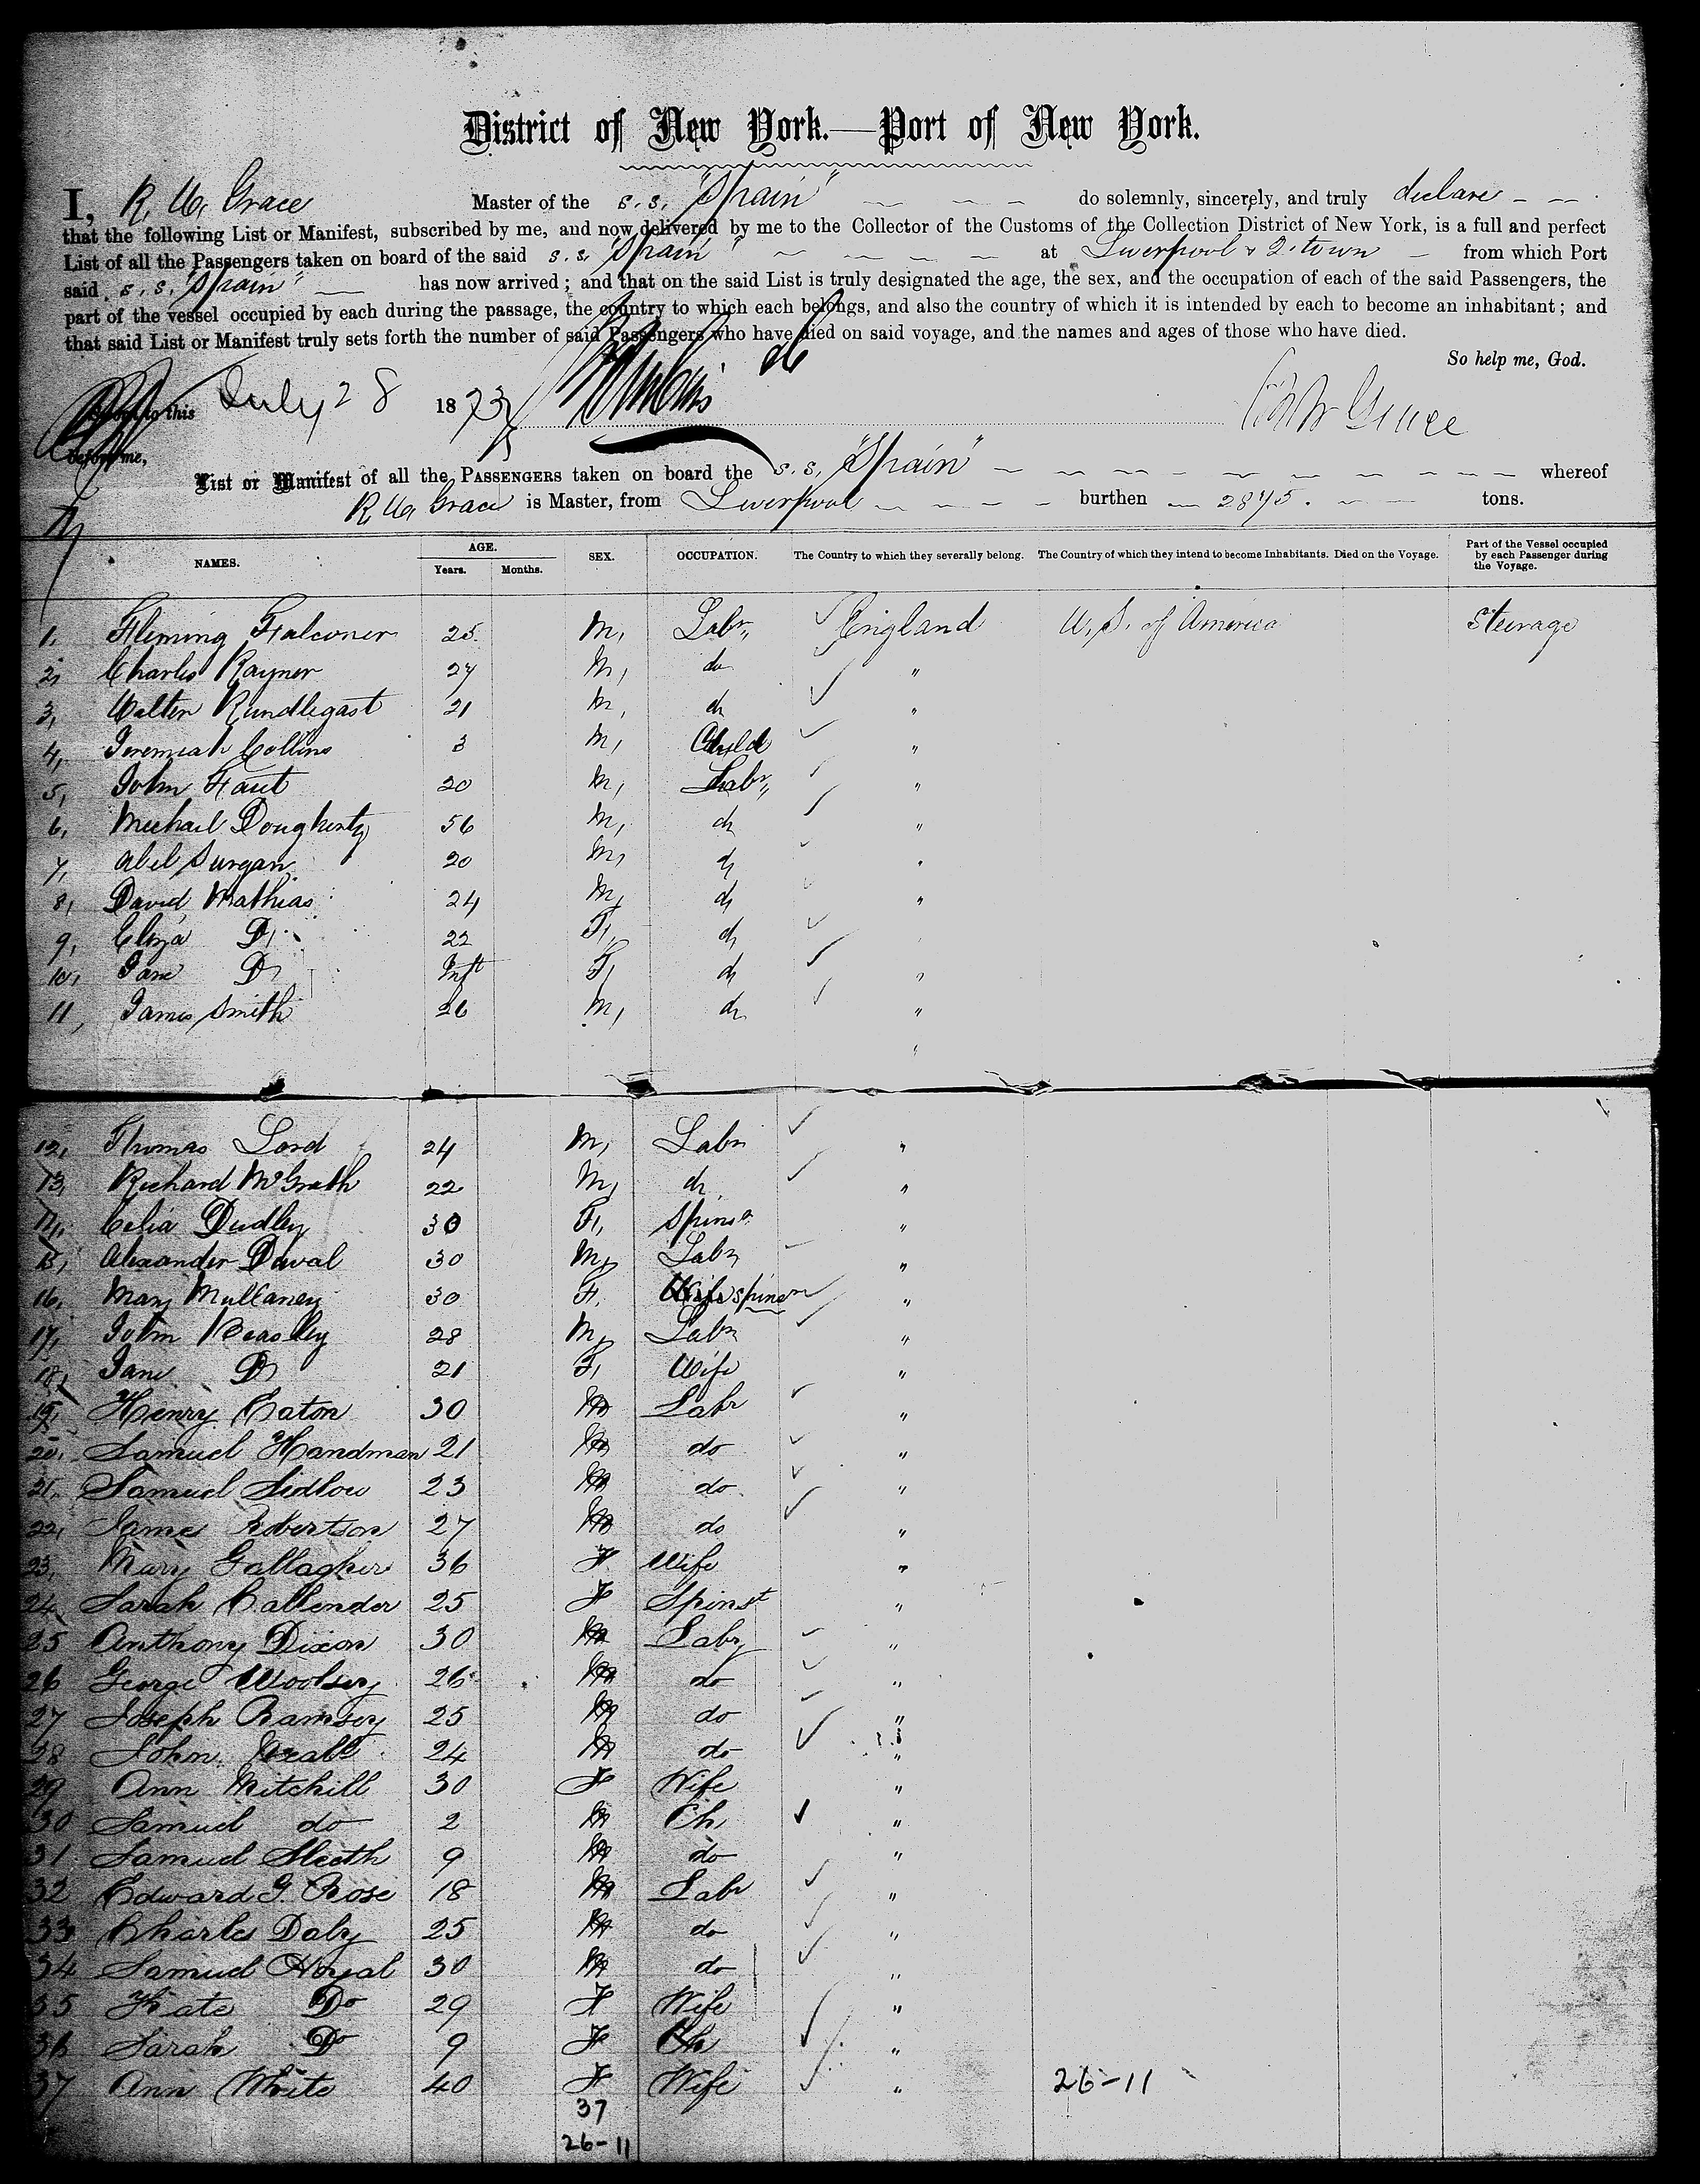 District of New York.—Port of New York.
I, R. W. Grace Master of the s. s. "Spain" — — — do solemnly, sincerely, and truly declare — —
that the following List or Manifest, subscribed by me, and now delivered by me to the Collector of the Customs of the Collection District of New York, is a full and perfect
List of all the Passengers taken on board of the said s. s. "Spain" — — — — — at Liverpool & Q. town — from which Port
said s. s. "Spain" — has now arrived; and that on the said List is truly designated the age, the sex, and the occupation of each of the said Passengers, the
part of the vessel occupied by each during the passage, the country to which each belongs, and also the country of which it is intended by each to become an inhabitant; and
that said List or Manifest truly sets forth the number of said Passengers who have died on said voyage, and the names and ages of those who have died.
So help me, God.
to this July 28 1873 R W Grace
before me,
List or Manifest of all the PASSENGERS taken on board the s. s. "Spain" — — — — — — — — — whereof
R W Grace is Master, from Liverpool — — — — burthen — 2875 . — — tons.
NAMES. AGE. SEX. OCCUPATION. The Country to which they severally belong. The Country of which they intend to become Inhabitants. Died on the Voyage. Part of the Vessel occupied by each Passenger during the Voyage.
Years. Months.
1, Fleming Falconer 25 M, Labr, England U, S. of America Steerage
2, Charles Rayner 27 M, do "
3, Walter Rundlegast 21 M, do "
4, Jeremiah Collins 3 M, Child "
5, John Faut 20 M, Labr, "
6, Michail Dougherty 56 M, do "
7, Abel Surgan 20 M, do "
8, David Mathias 24 M, do "
9, Eliza Do 22 F, do
10, Jane Do Inft F, do "
11, James Smith 26 M, do "
12, Thomas Lord 24 M, Labr "
13, Richard McGrath 22 M, do "
14, Celia Dudley 30 F, Spinsr "
15, Alexander Duval 30 M, Labr "
16, Mary Mullaney 30 F, spinsr "
17, John Beasley 28 M, Labr "
18, Jane Do 21 F, Wife "
19, Henry Eaton 30 M Labr "
20, Samuel Handman 21 M do "
21, Samuel Sidlow 23 M do "
22, James Robertson 27 M do "
23, Mary Gallagher 36 F Wife "
24, Sarah Callender 25 F Spinst "
25 Anthony Dixon 30 M Labr "
26 George Woolsey 26 M do "
27 Joseph Ramsey 25 M do "
28 John 24 M do "
29 Ann Mitchill 30 F Wife "
30 Samuel do 2 M Ch, "
31 Samuel Sleeth 9 M do "
32 Edward G. Rose 18 M Labr "
33 Charles Daly 25 M do "
34 Samuel Hoyal 30 M do "
35 Kate Do 29 F Wife "
36 Sarah Do 9 F Ch "
37 Ann White 40 F Wife " 26-11
37
26-11